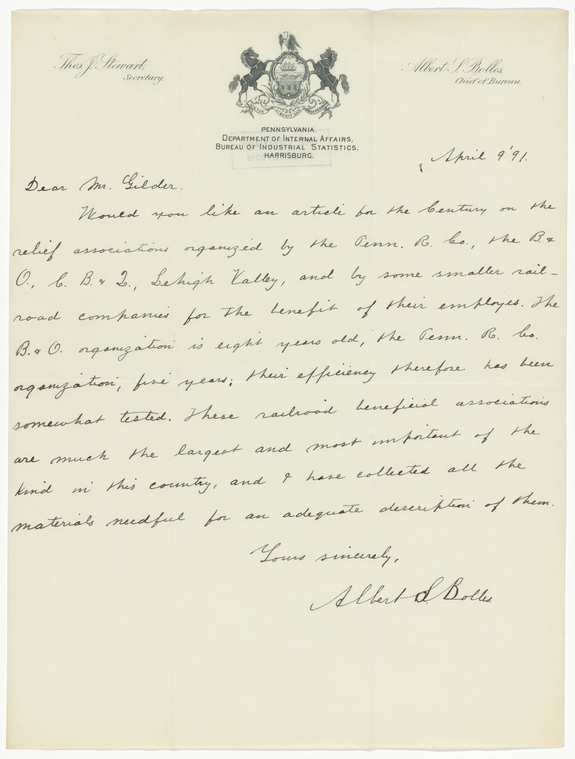 Thos. J. Stewart,
Secretary.
Albert S. Bolles
Chief of Bureau.
PENNSYLVANIA
DEPARTMENT OF INTERNAL AFFAIRS,
BUREAU OF INDUSTRIAL STATISTICS,
HARRISBURG.
April 9 '91.
Dear Mr. Gilder.
Would you like an article for the Century on the
relief associations organized by the Penn. R. Co., the B. &
O., C. B. & Q., Lehigh Valley, and by some smaller rail-
road companies for the benefit of their employes. The
B. & O. organization is eight years old, the Penn. R. Co.
organization, five years; their efficiency therefore has been
somewhat tested. These railroad beneficial associations
are much the largest and most important of the
kind in this country, and I have collected all the
materials needful for an adequate description of them.
Yours sincerely,
Albert S. Bolles